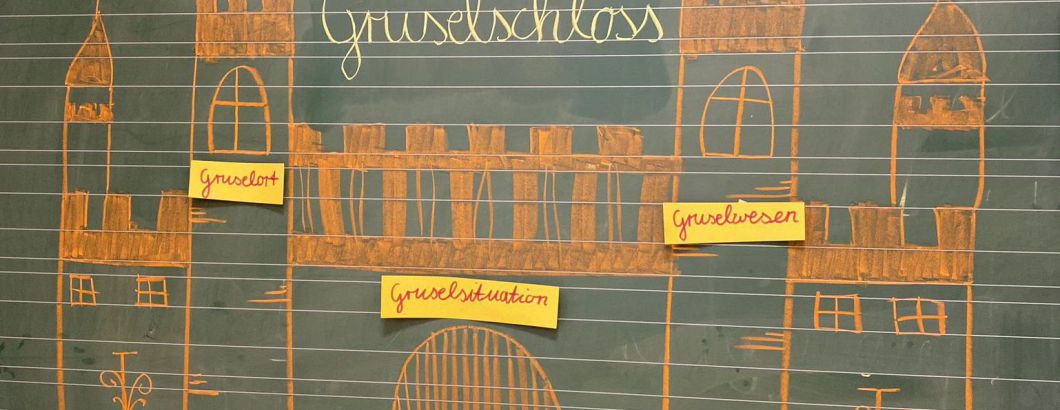 Gruselschloss
Gruselort
Gruselwesen
Gruselsituation